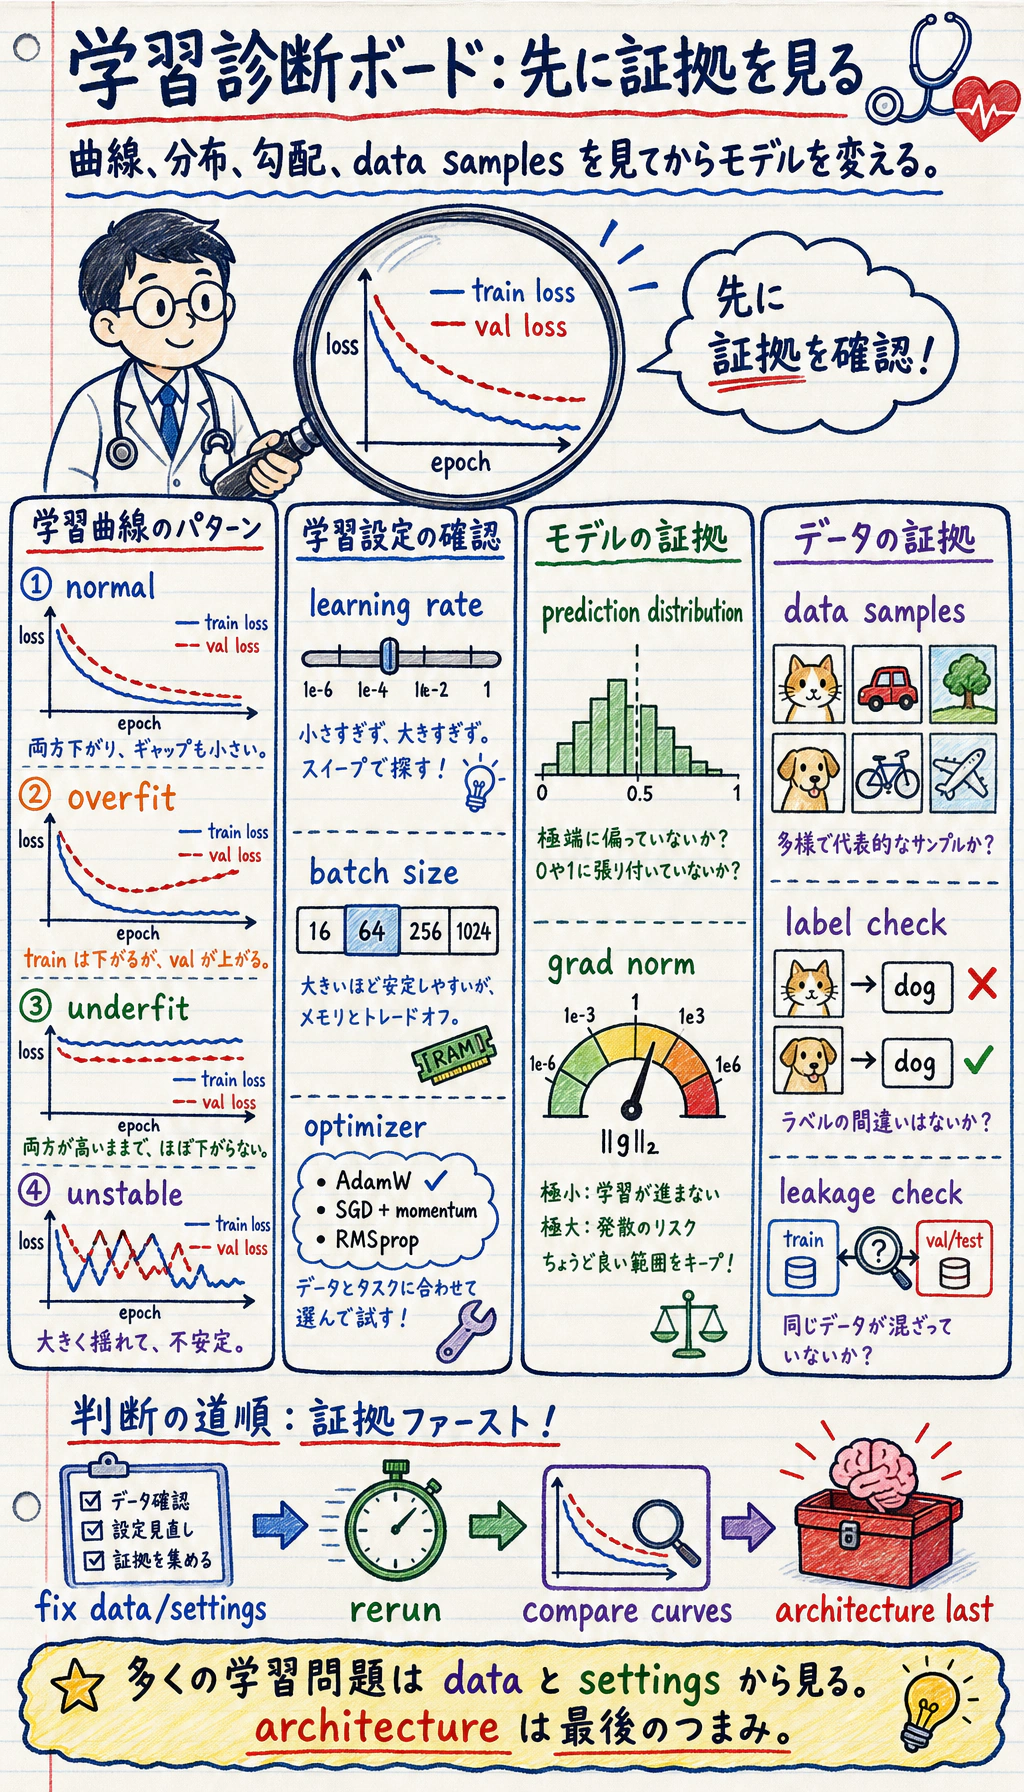 学習診断ボード：先に証拠を見る
曲線、分布、勾配、data samples を見てからモデルを変える。
loss
train loss
val loss
epoch
先に
証拠を確認！
学習曲線のパターン
① normal
loss
train loss
val loss
epoch
両方下がり、ギャップも小さい。
② overfit
loss
train loss
val loss
epoch
train は下がるが、val が上がる。
③ underfit
loss
train loss
val loss
epoch
両方が高いままで、ほぼ下がらない。
④ unstable
loss
train loss
val loss
epoch
大きく揺れて、不安定。
学習設定の確認
learning rate
1e-6 1e-4 1e-2 1
小さすぎず、大きすぎず。
スイープで探す！
batch size
16 64 256 1024
大きいほど安定しやすいが、
メモリとトレードオフ。
RAM
optimizer
• AdamW ✓
• SGD + momentum
• RMSprop
データとタスクに合わせて
選んで試す！
モデルの証拠
prediction distribution
0 0.5 1
極端に偏っていないか？
0や1に張り付いていないか？
grad norm
1e-6 1e-3 1 1e3 1e6
||g||₂
極小：学習が進まない
極大：発散のリスク
ちょうど良い範囲をキープ！
データの証拠
data samples
多様で代表的なサンプルか？
label check
→ dog ✗
→ dog ✓
ラベルの間違いはないか？
leakage check
train ? val/test
同じデータが混ざって
いないか？
判断の道順：証拠ファースト！
データ確認
設定見直し
証拠を集める
fix data/settings
rerun
compare curves
architecture last
多くの学習問題は data と settings から見る。
architecture は最後のつまみ。